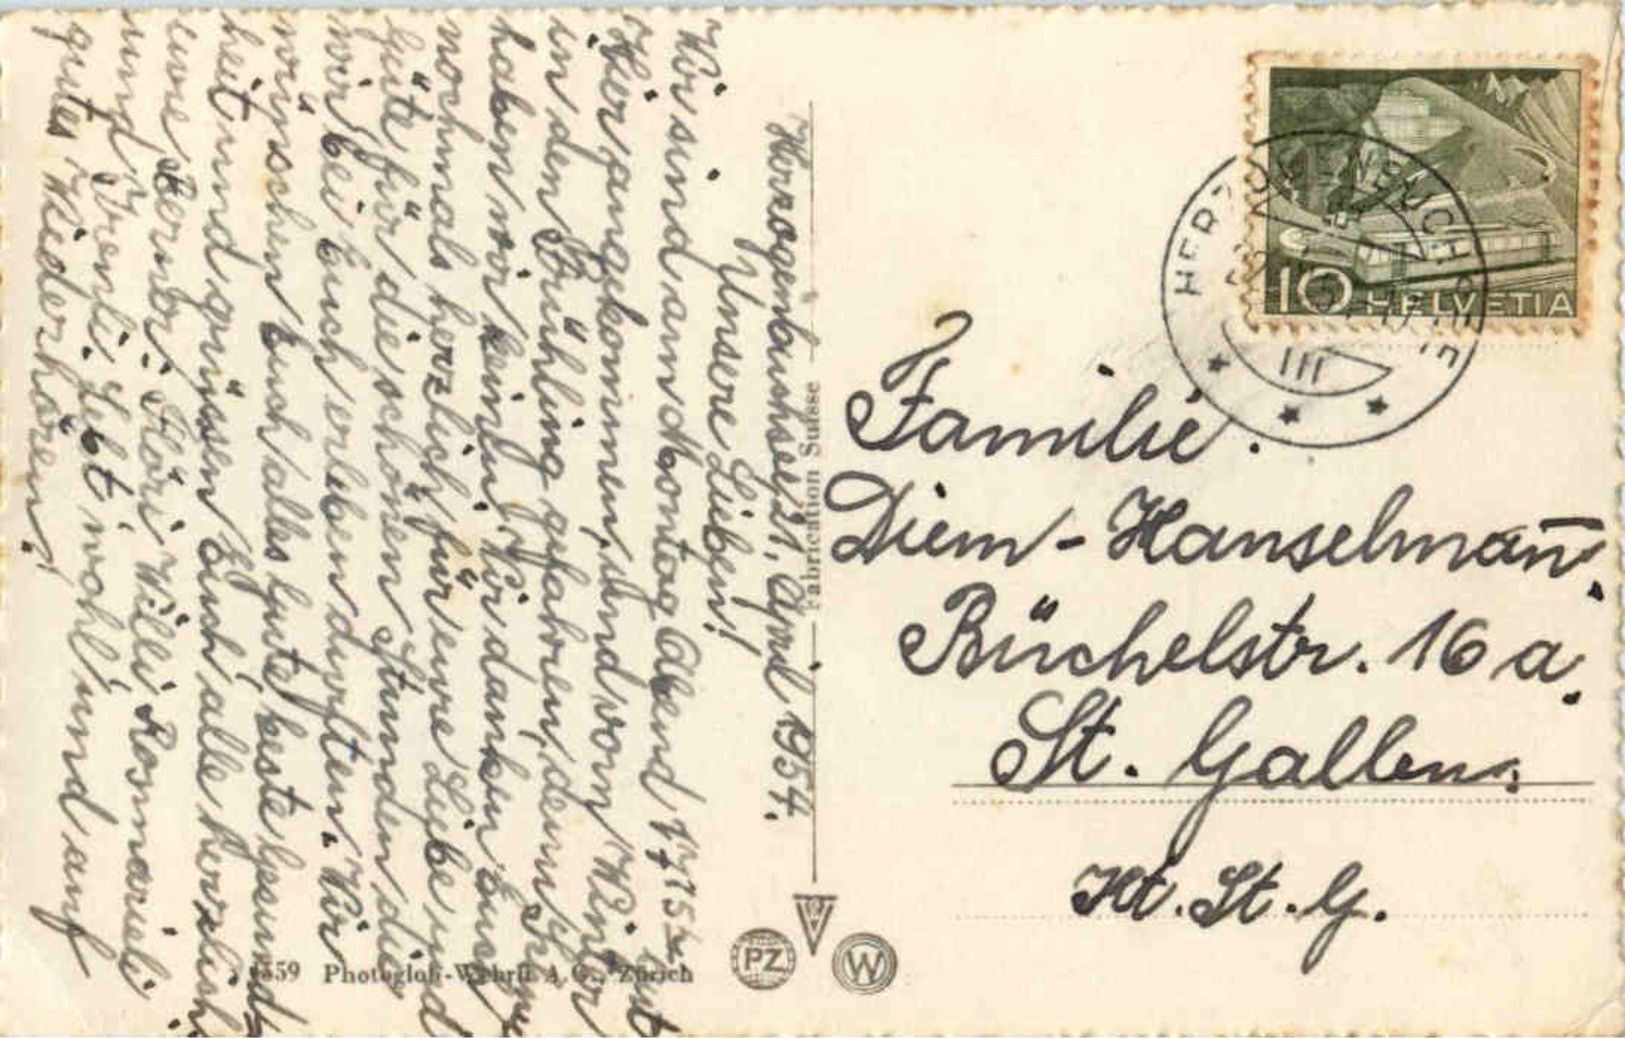 Herzogenbuchsee, 21. April 1954.
Unsere Lieben!
Wir sind am Montag Abend 17 15 gut
hier angekommen, und vom Winter
in den Frühling gefahren, denn Schnee
haben wir keinen. Wir danken Euch
nochmals herzlich für eure Liebe und
Güte, für die schönen Stunden die
wir bei Euch erleben durften. Wir
wünschen Euch alles Gute, beste Gesund-
heit und grüssen Euch alle herzlich
eure Berner: Willi Rosmarieli
und Vreneli. Lebt wohl und auf
gutes Wiederhören!
HERZOGENBUCHSEE
III
10 HELVETIA
Fabrication Suisse
Familie.
Diem-Hanselman̄.
Büchelstr. 16 a.
St. Gallen.
Kt. St. G.
PZ
W
59 Photoglob-Wehrli A.G., Zürich